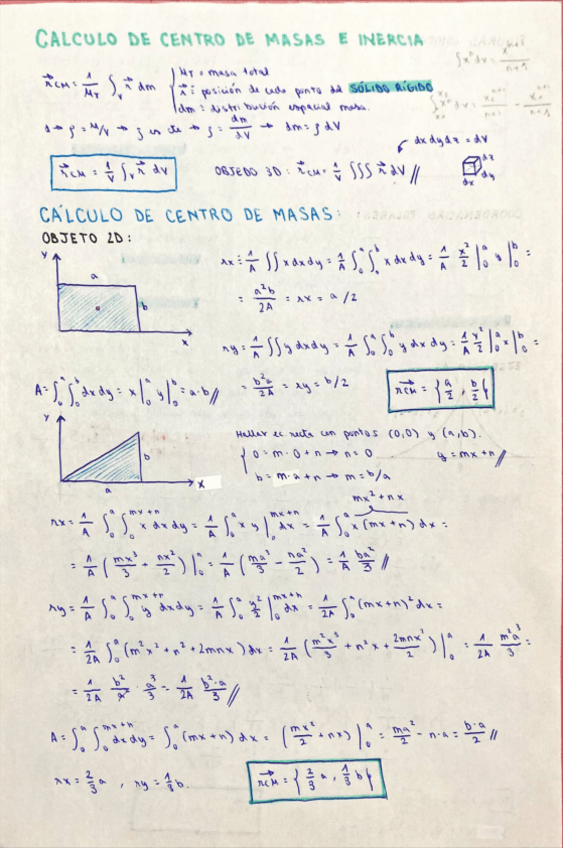 CALCULO DE CENTRO DE MASAS E INERCIA
r⃗cm = 1/M_T ∫_v r⃗ dm { M_T = masa total
r⃗ = posición de cada punto del SÓLIDO RÍGIDO
dm = distribución espacial masa.
ρ = M/V → ρ = dm/dV → dm = ρ dV
dxdydz = dV
r⃗cm = 1/V ∫_v r⃗ dV
OBJEDO 3D: r⃗cm = 1/V ∫∫∫ r⃗ dV //
dz
dy
dx
CÁLCULO DE CENTRO DE MASAS:
OBJETO 2D:
y
a
b
x
rx = 1/A ∫∫ x dx dy = 1/A ∫_0^a ∫_0^b x dx dy = 1/A x²/2 |_0^a y |_0^b =
= a²b/2A = rx = a/2
ry = 1/A ∫∫ y dx dy = 1/A ∫_0^a ∫_0^b y dx dy = 1/A y²/2 |_0^a x |_0^b =
A = ∫_0^a ∫_0^b dx dy = x |_0^a y |_0^b = a·b //
= b²a/2A = ry = b/2
r⃗cm = { a/2 , b/2 }
y
b
a
x
Hallar ec recta con puntos (0,0) y (a,b).
{ 0 = m·0 + n → n = 0
y = mx + n //
b = m·a + n → m = b/a
mx² + nx
rx = 1/A ∫_0^a ∫_0^{mx+n} x dx dy = 1/A ∫_0^a x y |_0^{mx+n} dx = 1/A ∫_0^a x (mx+n) dx =
= 1/A ( mx³/3 + nx²/2 ) |_0^a = 1/A ( ma³/3 - na²/2 ) = 1/A ba²/3 //
ry = 1/A ∫_0^a ∫_0^{mx+n} y dx dy = 1/A ∫_0^a y²/2 |_0^{mx+n} dx = 1/2A ∫_0^a (mx+n)² dx =
= 1/2A ∫_0^a (m²x² + n² + 2mnx) dx = 1/2A ( m²x³/3 + n²x + 2mnx²/2 ) |_0^a = 1/2A m²a³/3 =
= 1/2A b²/a² · a³/3 = 1/2A b²·a/3 //
A = ∫_0^a ∫_0^{mx+n} dx dy = ∫_0^a (mx+n) dx = ( mx²/2 + nx ) |_0^a = ma²/2 - n·a = b·a/2 //
rx = 2/3 a , ry = 1/3 b.
r⃗cm = { 2/3 a , 1/3 b }